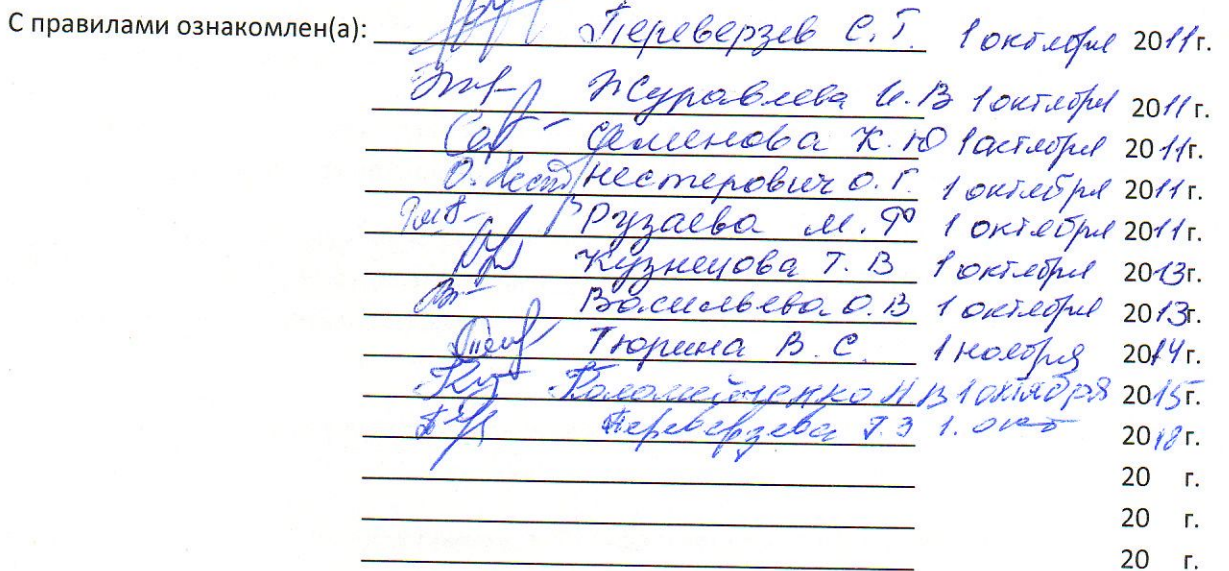 С правилами ознакомлен(а): Переверзев С.Г. 1 октября 2011г.
Журавлева И.В 1 октября 2011г.
Семенова К.Ю 1 октября 2011г.
О. Нест Нестерович О.Г. 1 октября 2011г.
Рузаева М.Ф 1 октября 2011г.
Кузнецова Т.В 1 октября 2013г.
Васильева О.В 1 октября 2013г.
Тюрина В.С. 1 ноября 2014г.
Коломейченко Н.В 1 октября 2015г.
Переверзева Т.Э 1. окт 2018г.
20 г.
20 г.
20 г.